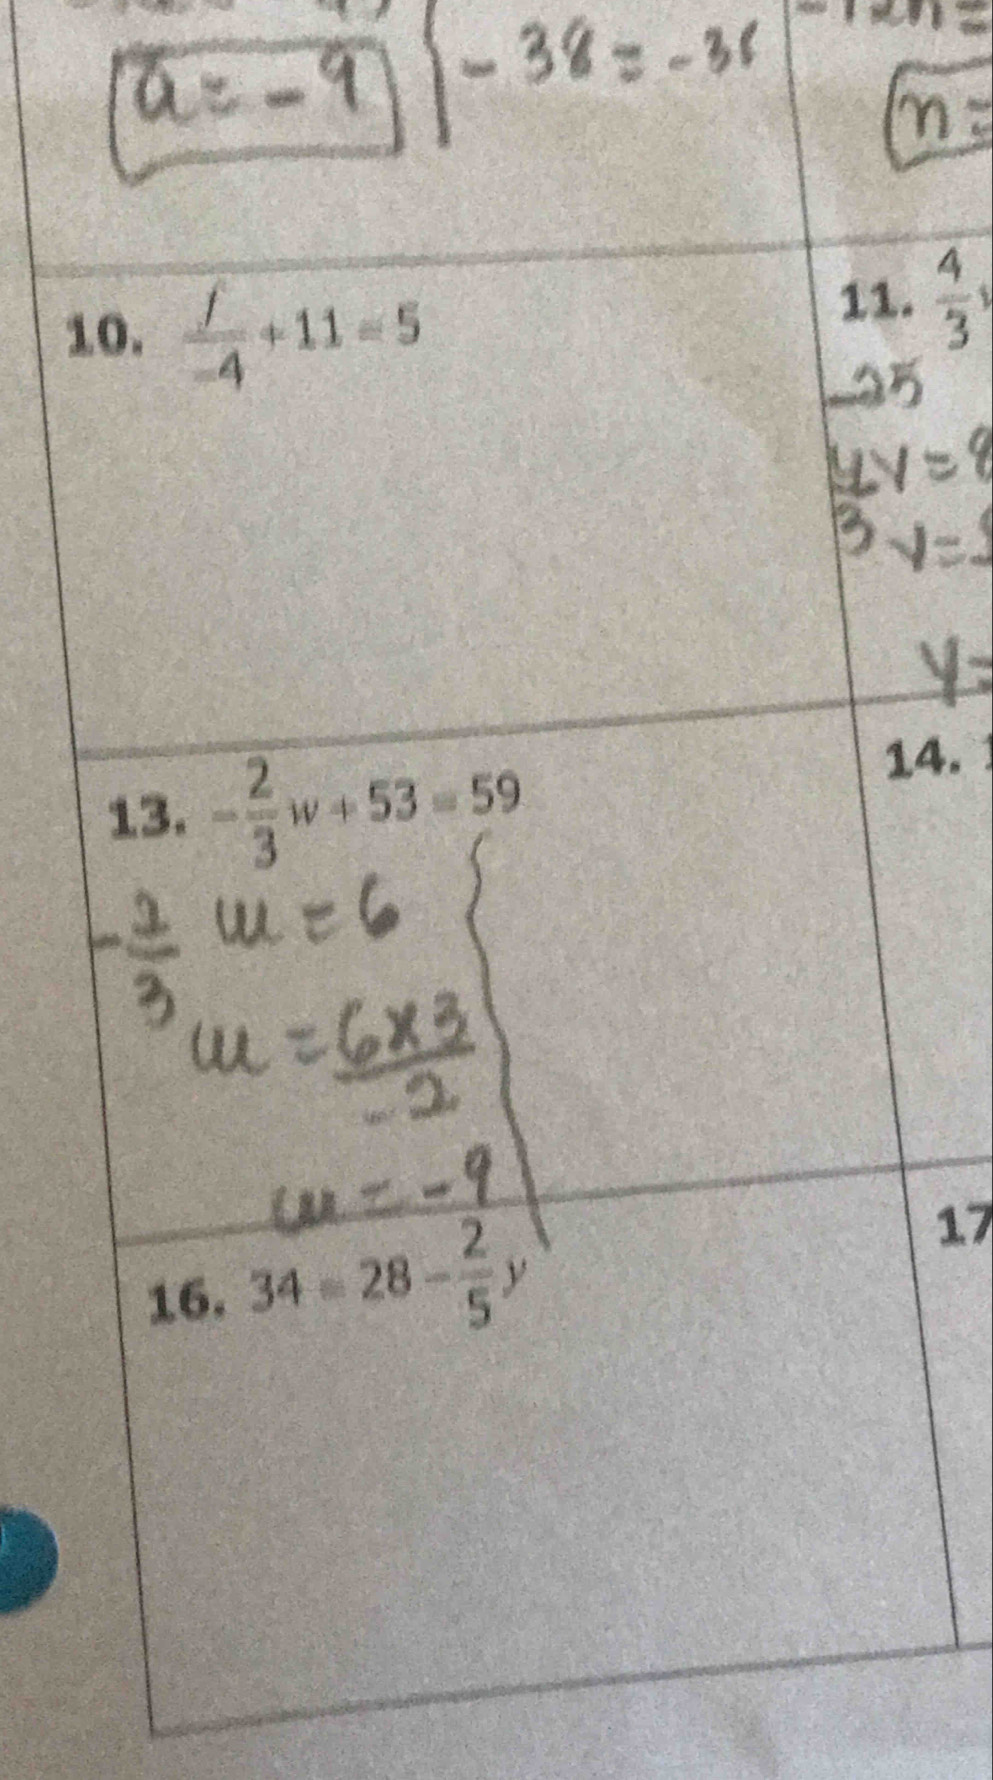 a = -9
- 38 = -38
n =
10. f/-4 + 11 = 5
11. 4/3
-25
4/3 y = 8
y =
y =
13. -2/3 w + 53 = 59
-2/3 w = 6
w = 6×3/-2
w = -9
14.
16. 34 = 28 - 2/5 y
17